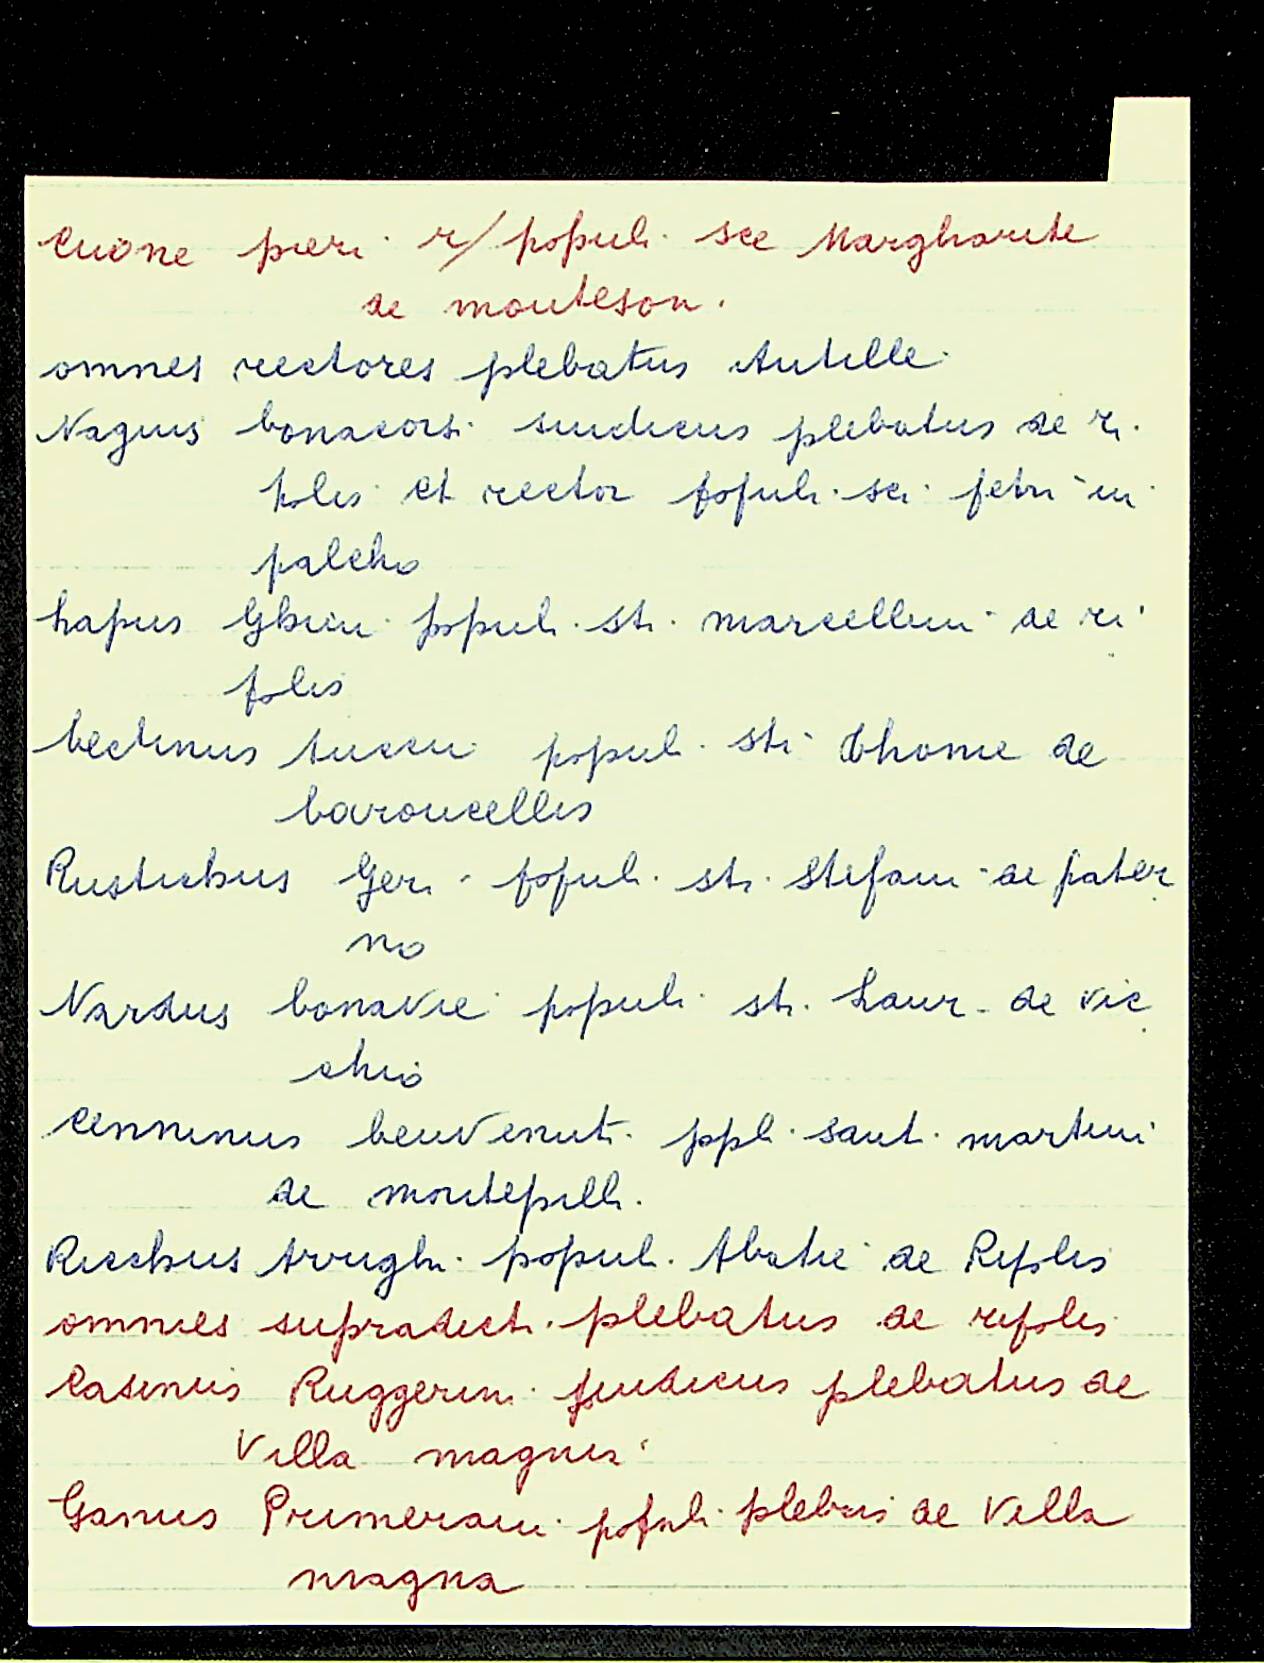 Cuone pieri r/ populi sce Margharite
de monteson.
omnes rectores plebatus Antille
Nagius bonacorsi sindicus plebatus de ri
poles et rector populi sci petri in
palcho
Lapus Ghini populi sti marcellini de ri
polis
bectinus tuccii populi sti Thome de
baroncellis
Rustichus Geri populi sti Stefani de pater
no
Nardus bonavie populi sti Laur. de vic
chio
Cenninus benvenuti ppli sant. martini
de montepilli.
Ricchus arrighi populi Abatie de Ripolis
omnes supradicti plebatus de ripolis
Casinus Ruggerini sindicus plebatus de
Villa magna
Ganus Primerani populi plebis de Villa
magna